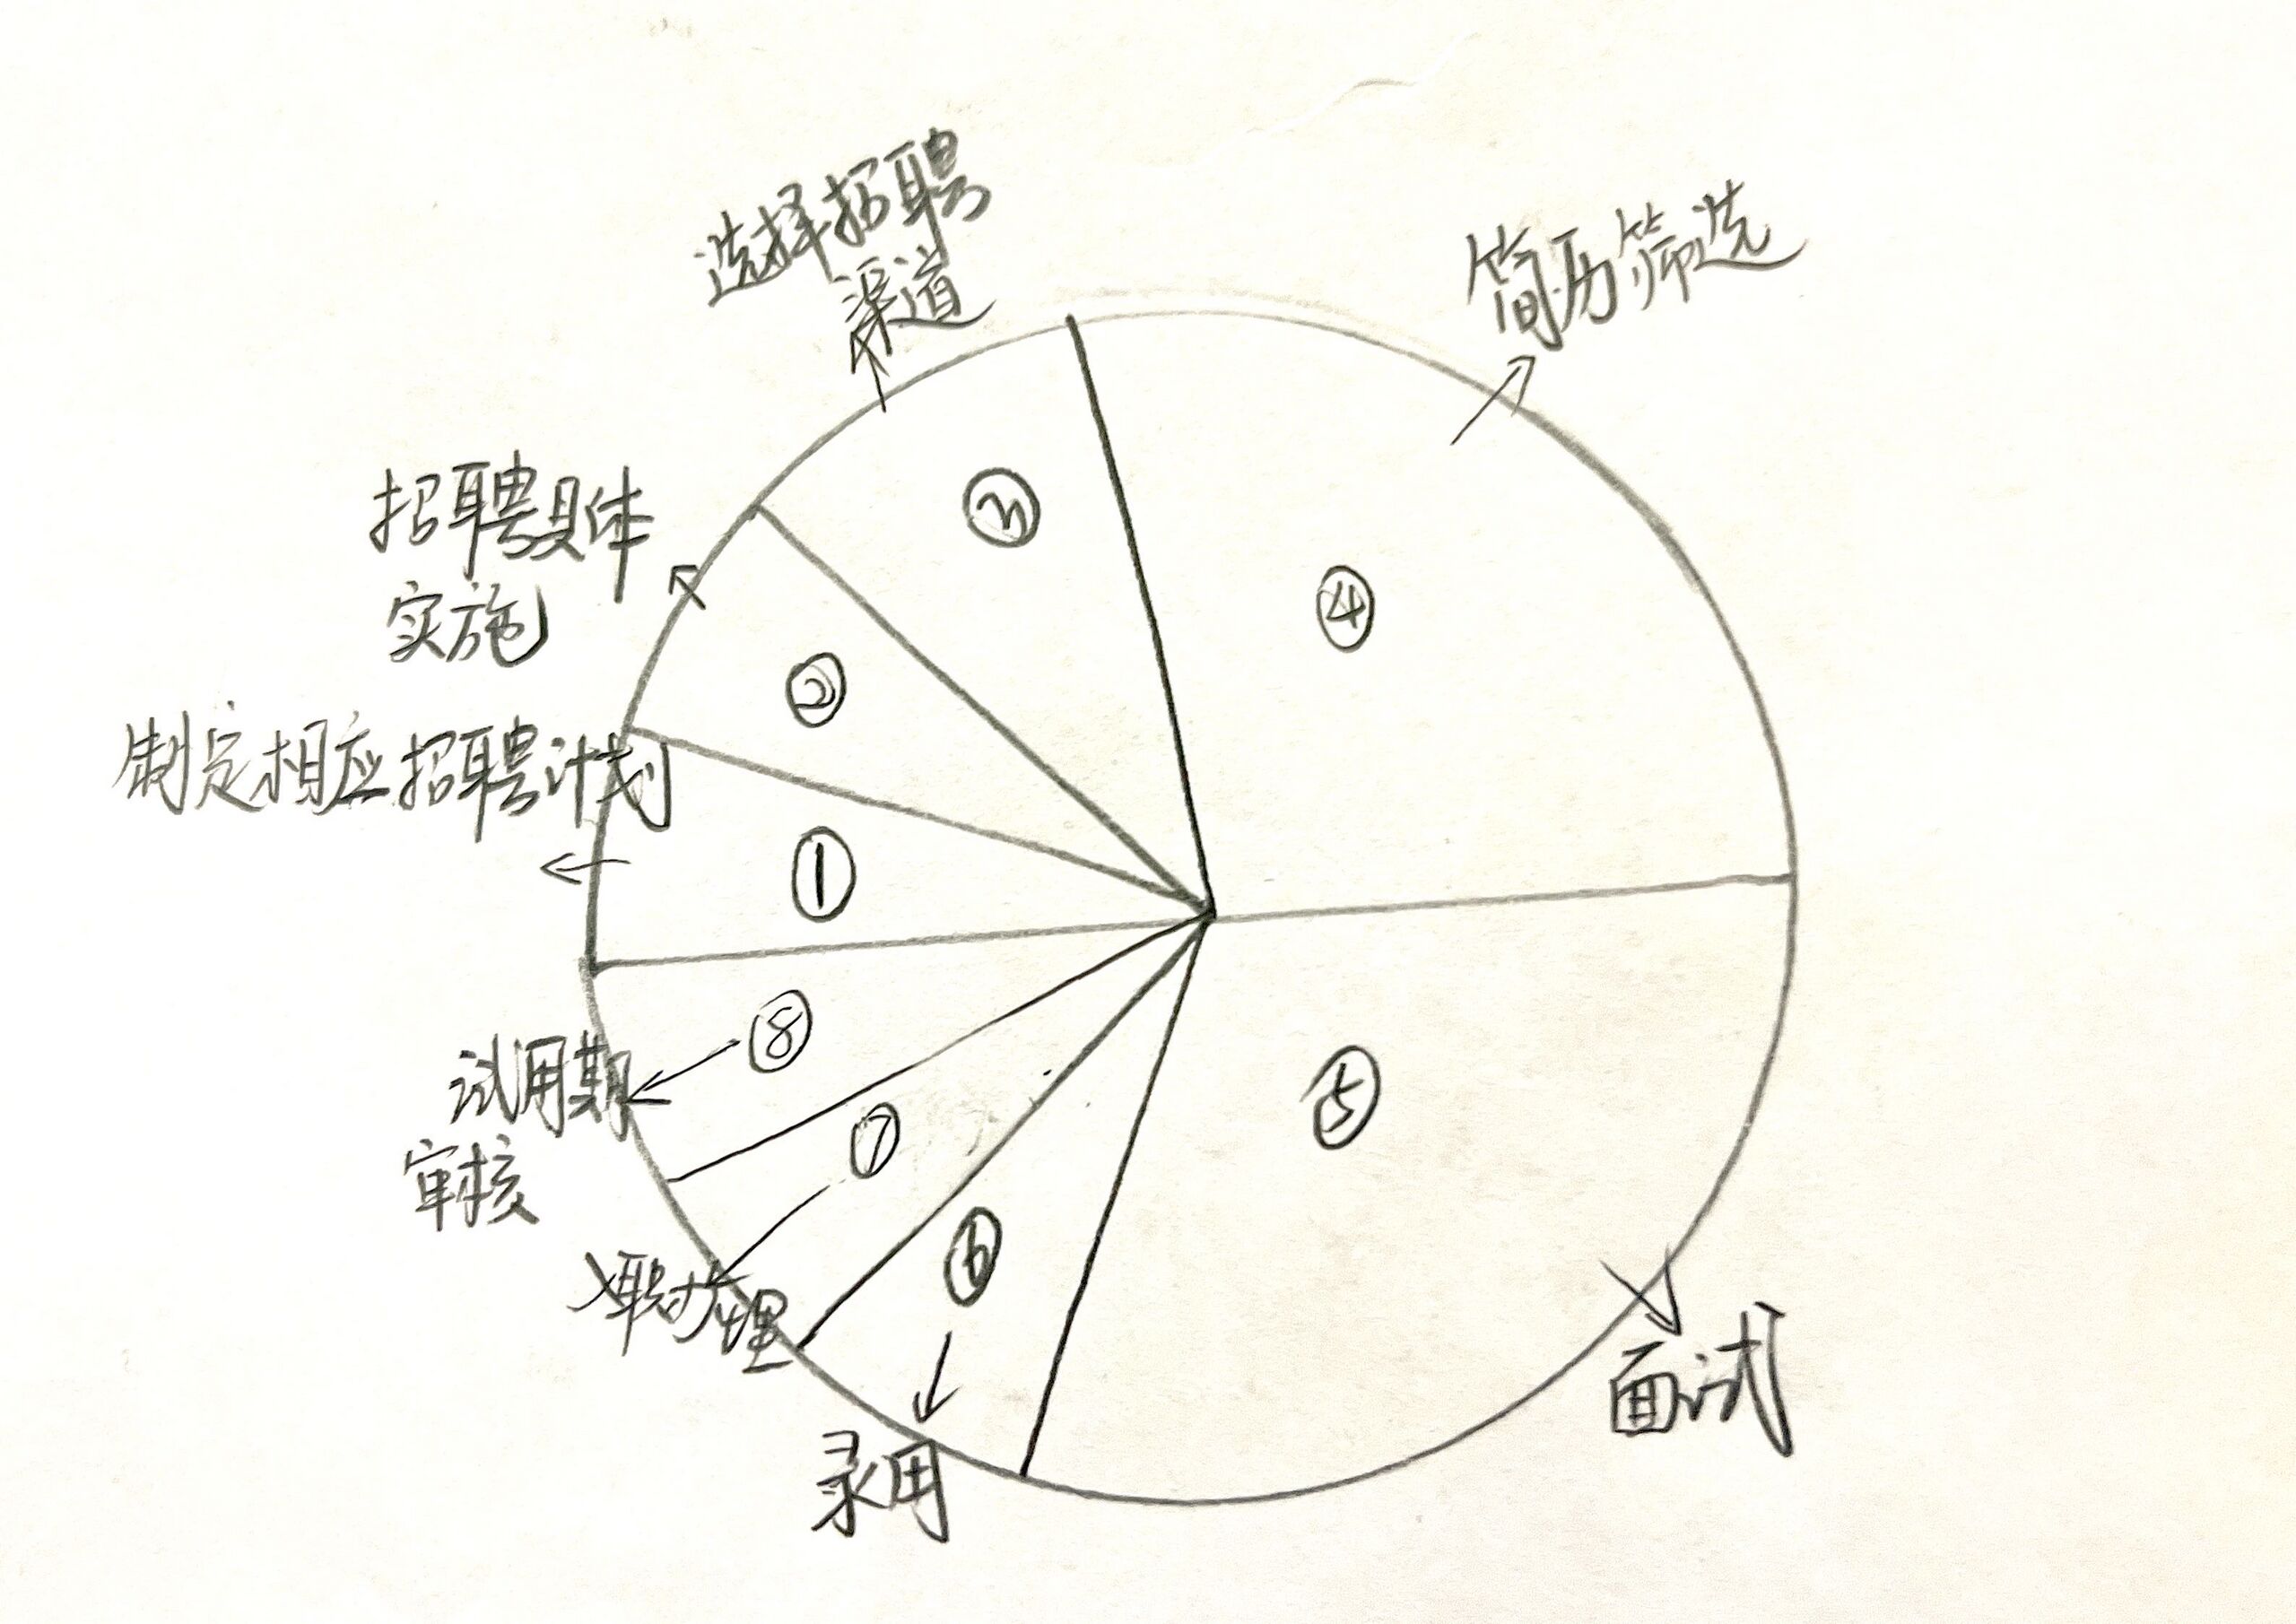 选择招聘
渠道
简历筛选
招聘具体
实施
制定相应招聘计划
③
④
②
①
⑧
试用期
审核
⑦
⑤
⑥
入职办理
面试
录用